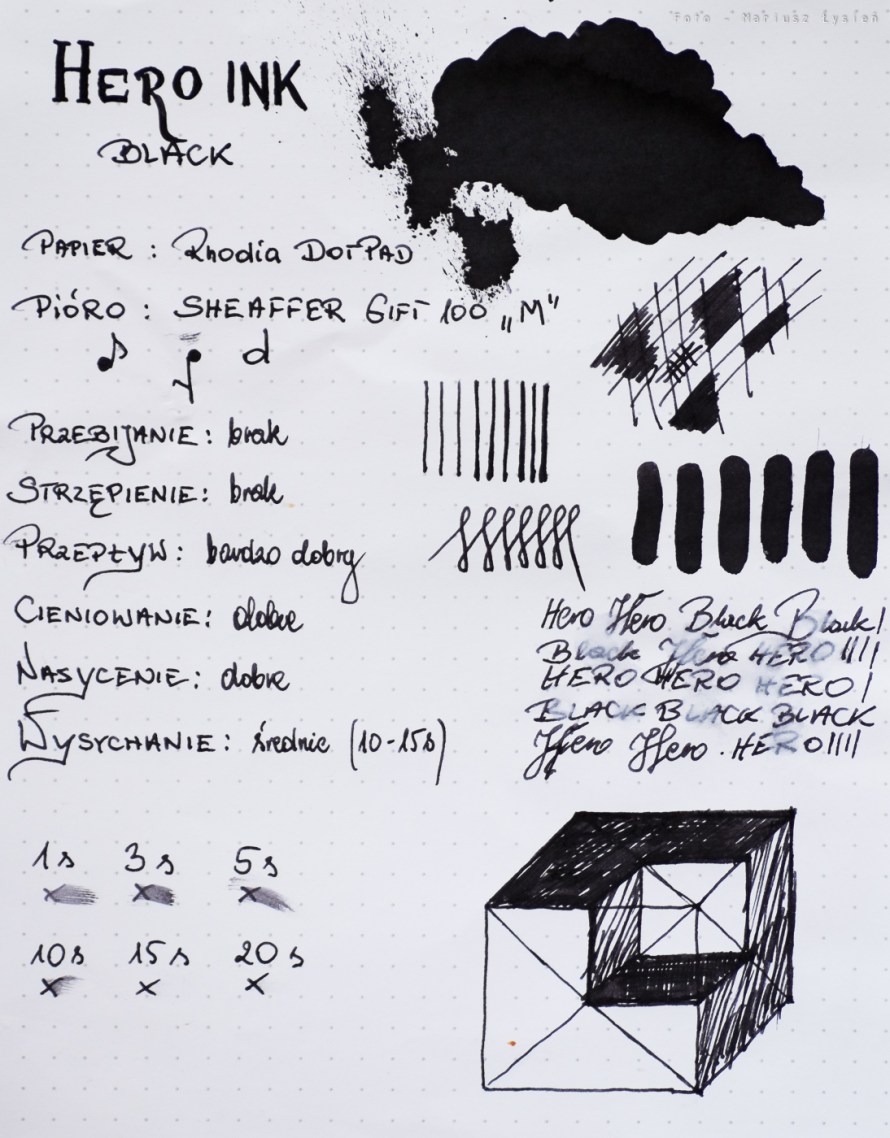 Foto - Mariusz Łysień
HERO INK
BLACK
PAPIER : Rhodia DOTPAD
PIÓRO : SHEAFFER GIFT 100 „M"
PRZEBIJANIE : brak
STRZĘPIENIE : brak
PRZEPŁYW : bardzo dobry
CIENIOWANIE : dobre
NASYCENIE : dobre
WYSYCHANIE : średnie (10-15s)
Hero Hero Black Black!
Black Hero HERO!!!!
HERO HERO HERO!
BLACK BLACK BLACK
Hero Hero . HERO!!!!
1s 3s 5s
x x x
10s 15s 20s
x x x